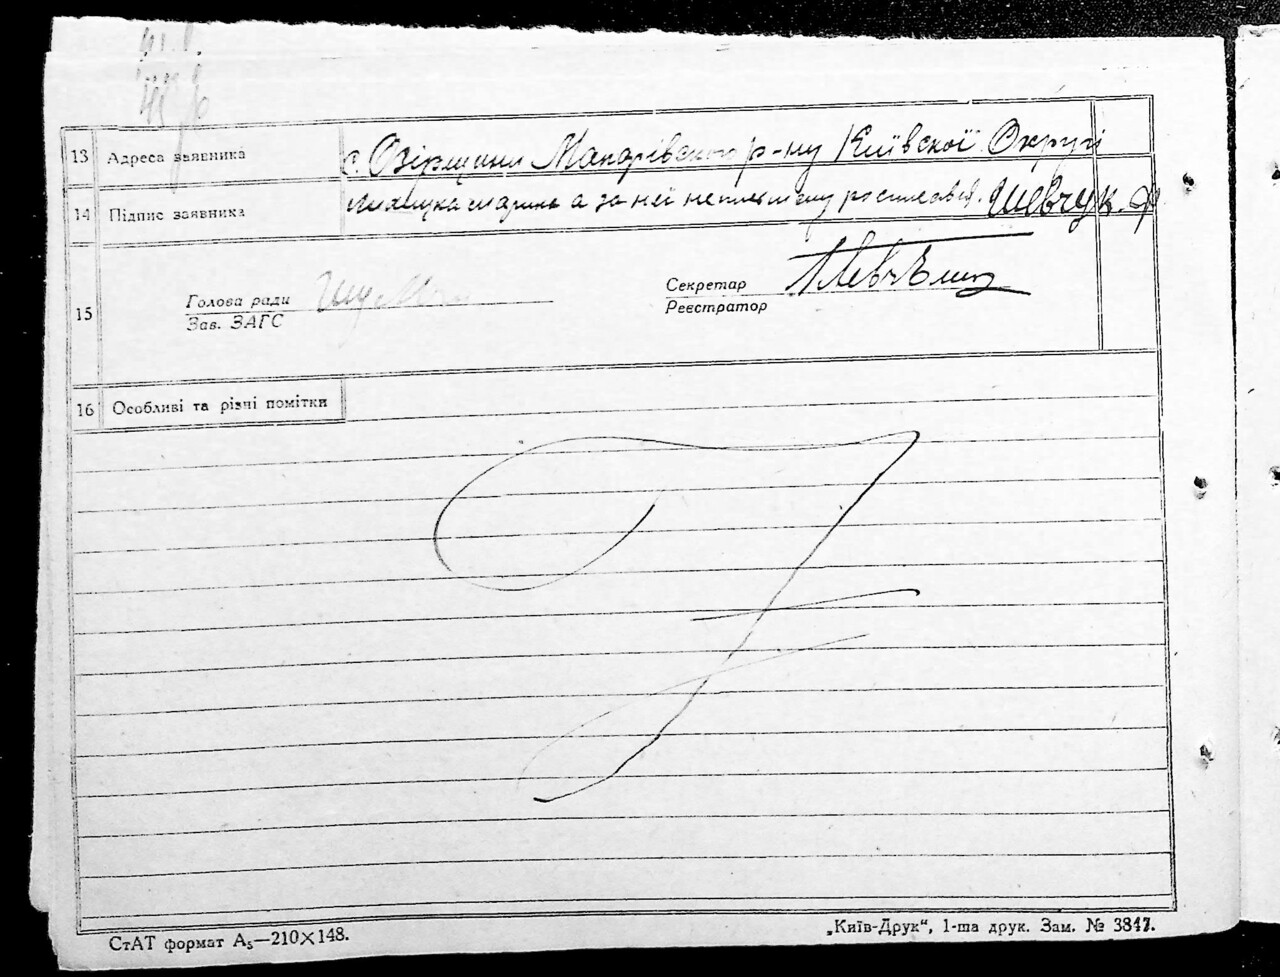 13 Адреса заявника с. Озірщини Макарівського р-ну Київскої Округі
14 Підпис заявника а за неї неписьмену росписався. Шевчук. Ф
Секретар
15 Голова ради
Зав. ЗАГС Реєстратор
16 Особливі та різні помітки
СтАТ формат А₅—210×148. „Київ-Друк“, 1-ша друк. Зам. № 3847.